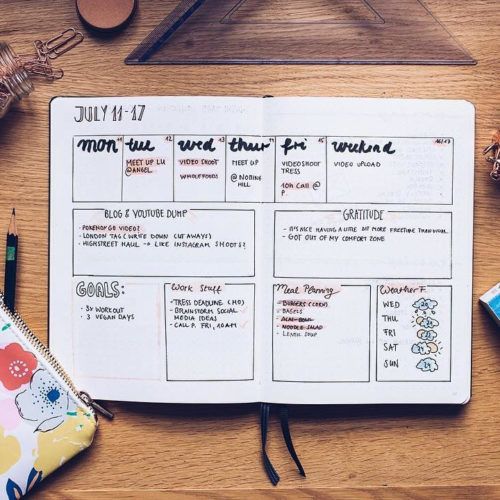 JULY 11-17
mon 11
tue 12
wed 13
thur 14
fri 15
weekend 16/17
MEET UP LU
@ANGEL
VIDEO SHOOT
WHOLEFOODS
MEET UP
@ NOTTING
HILL
VIDEOSHOOT
TRESS
10H CALL @
P.
VIDEO UPLOAD
BLOG & YOUTUBE DUMP
- POKEMON GO VIDEO?
- LONDON TAG (WRITE DOWN CUTAWAYS)
- HIGHSTREET HAUL → LIKE INSTAGRAM SHOOTS?
GRATITUDE
- IT'S NICE HAVING A LITTLE BIT MORE FREETIME THAN USUAL.
- GOT OUT OF MY COMFORT ZONE
GOALS:
- 3x WORKOUT
- 3 VEGAN DAYS
Work Stuff
- TRESS DEADLINE (MO)
- BRAINSTORM SOCIAL
MEDIA IDEAS
- CALL P. FRI, 10AM
Meal Planning
- BURGERS
- BAGELS
- ACAI BOWL
- NOODLE SALAD
- LENTIL SOUP
Weather F.
WED
THU
FRI
SAT
SUN